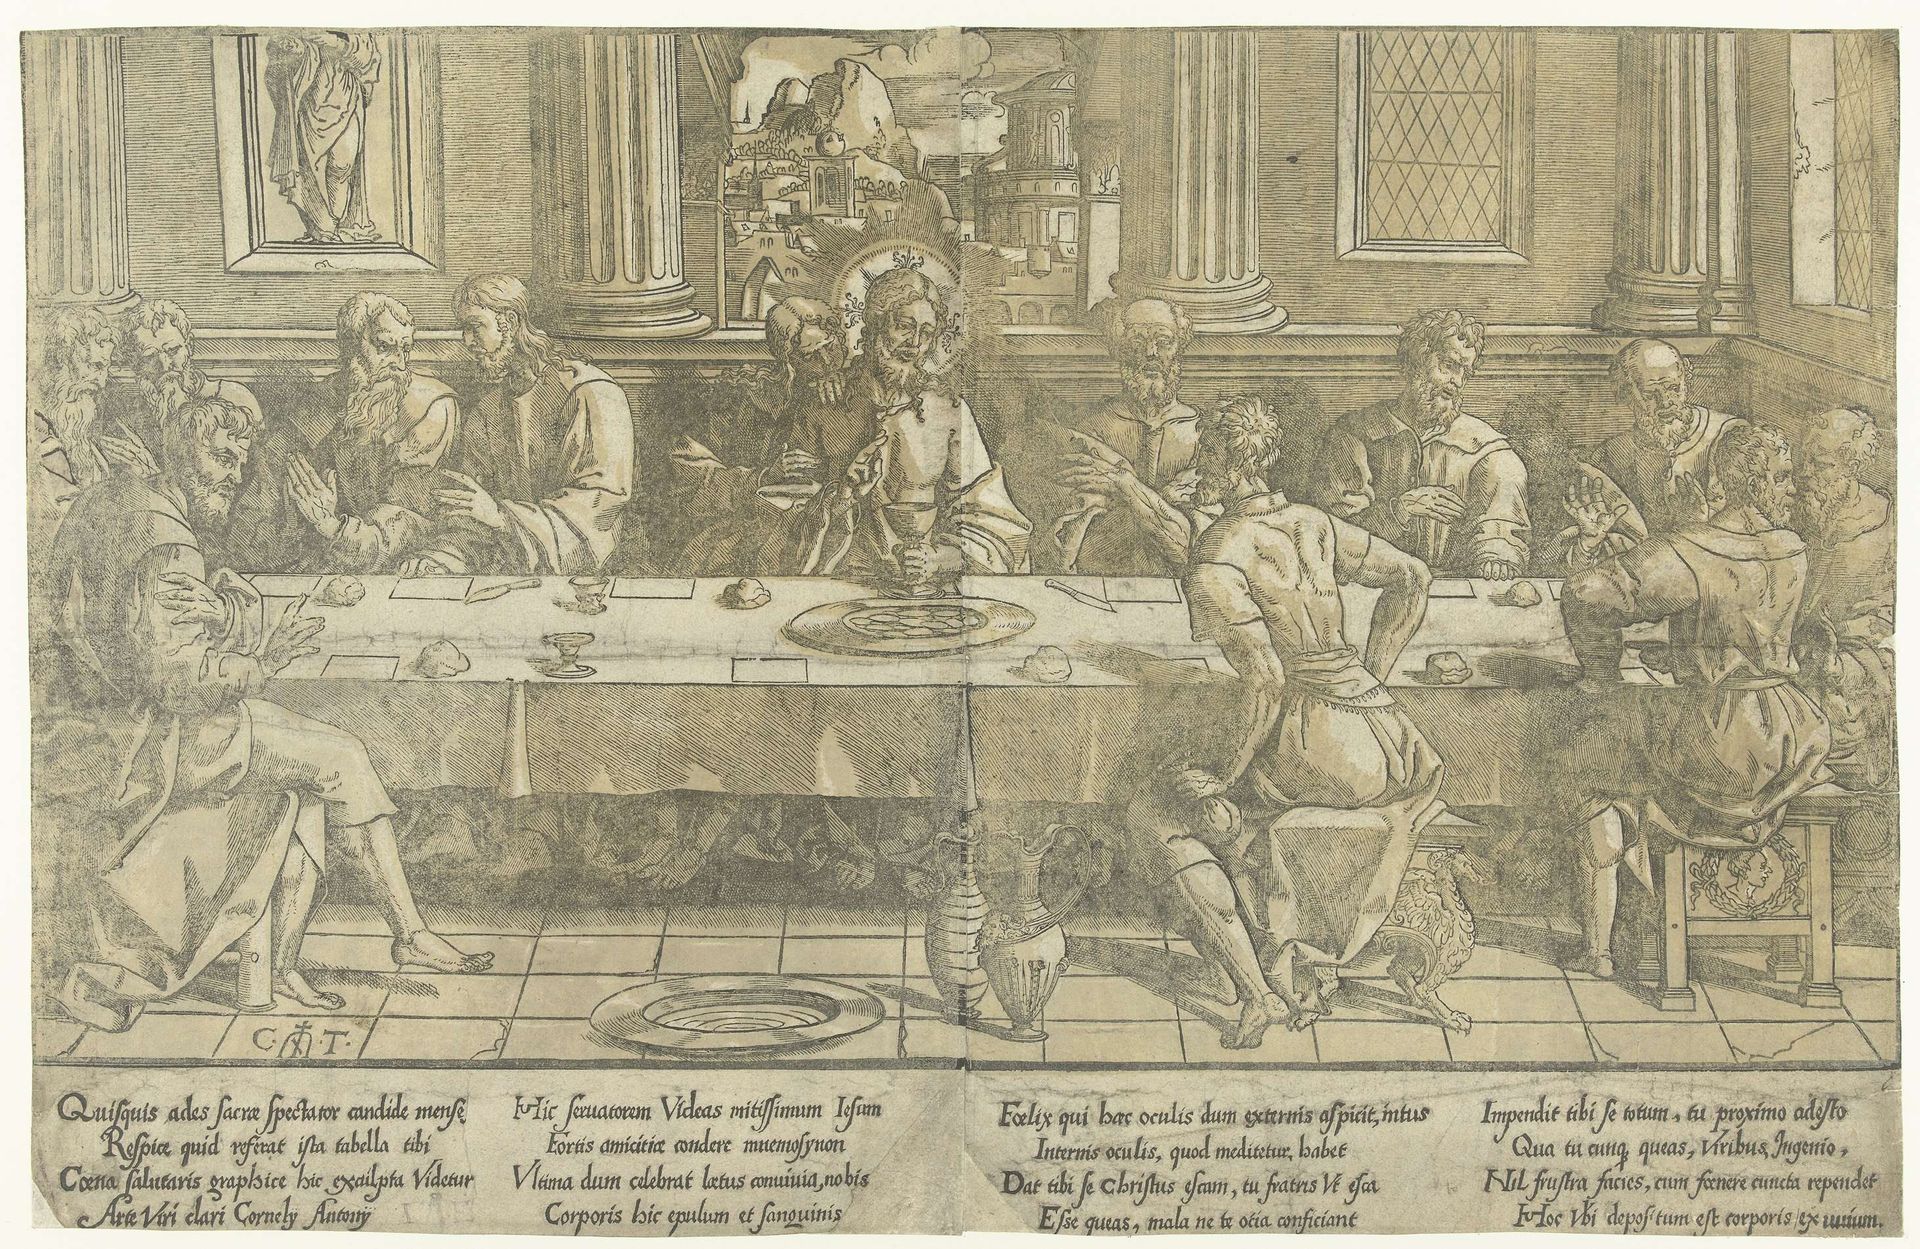 C. AT. T.
Quisquis ades sacræ spectator candide mensę
Respice quid referat ista tabella tibi
Cœna salutaris graphice hic exculpta Videtur
Arte Viri clari Cornely Antonij
Hic seruatorem Videas mitissimum Iesum
Fortis amicitiæ condere mnemosynon
Vltima dum celebrat lætus conuiuia, nobis
Corporis hic epulum et sanguinis
Fœlix qui hæc oculis dum externis aspicit, intus
Internis oculis, quod meditetur, habet
Dat tibi se Christus escam, tu fratris Vt esca
Esse queas, mala ne te otia conficiant
Impendit tibi se totum, tu proximo adesto
Qua tu cunq, queas, Viribus, Ingenio,
Nil frustra facies, cum fœnere cuncta rependet
Hoc Vbi depositum est corporis